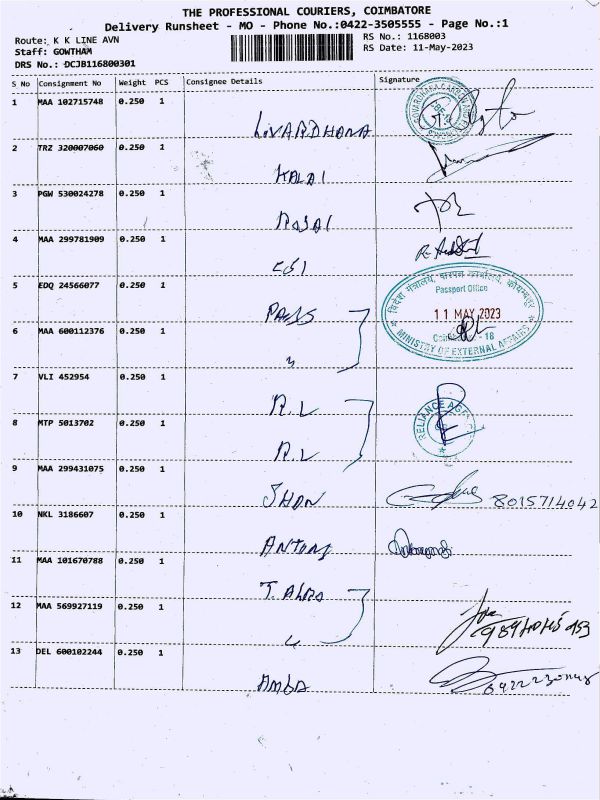 THE PROFESSIONAL COURIERS, COIMBATORE
Delivery Runsheet - MO - Phone No.:0422-3505555 - Page No.:1
Route: K K LINE AVN
RS No.: 1168003
Staff: GOWTHAM
RS Date: 11-May-2023
DRS No.: DCJB116800301
S No Consignment No Weight PCS Consignee Details Signature
1 MAA 102715748 0.250 1
2 TRZ 320007060 0.250 1 KALAI
3 PGW 530024278 0.250 1
4 MAA 299781909 0.250 1
5 EDQ 24566077 0.250 1 PASS
Passport Office
11 MAY 2023
MINISTRY OF EXTERNAL AFFAIRS
6 MAA 600112376 0.250 1
7 VLI 452954 0.250 1 R.L
RELIANCE
8 MTP 5013702 0.250 1 R.L
9 MAA 299431075 0.250 1 JHON 8015714042
10 NKL 3186607 0.250 1 ANTONY
11 MAA 101670788 0.250 1
12 MAA 569927119 0.250 1
13 DEL 600102244 0.250 1 AMBA